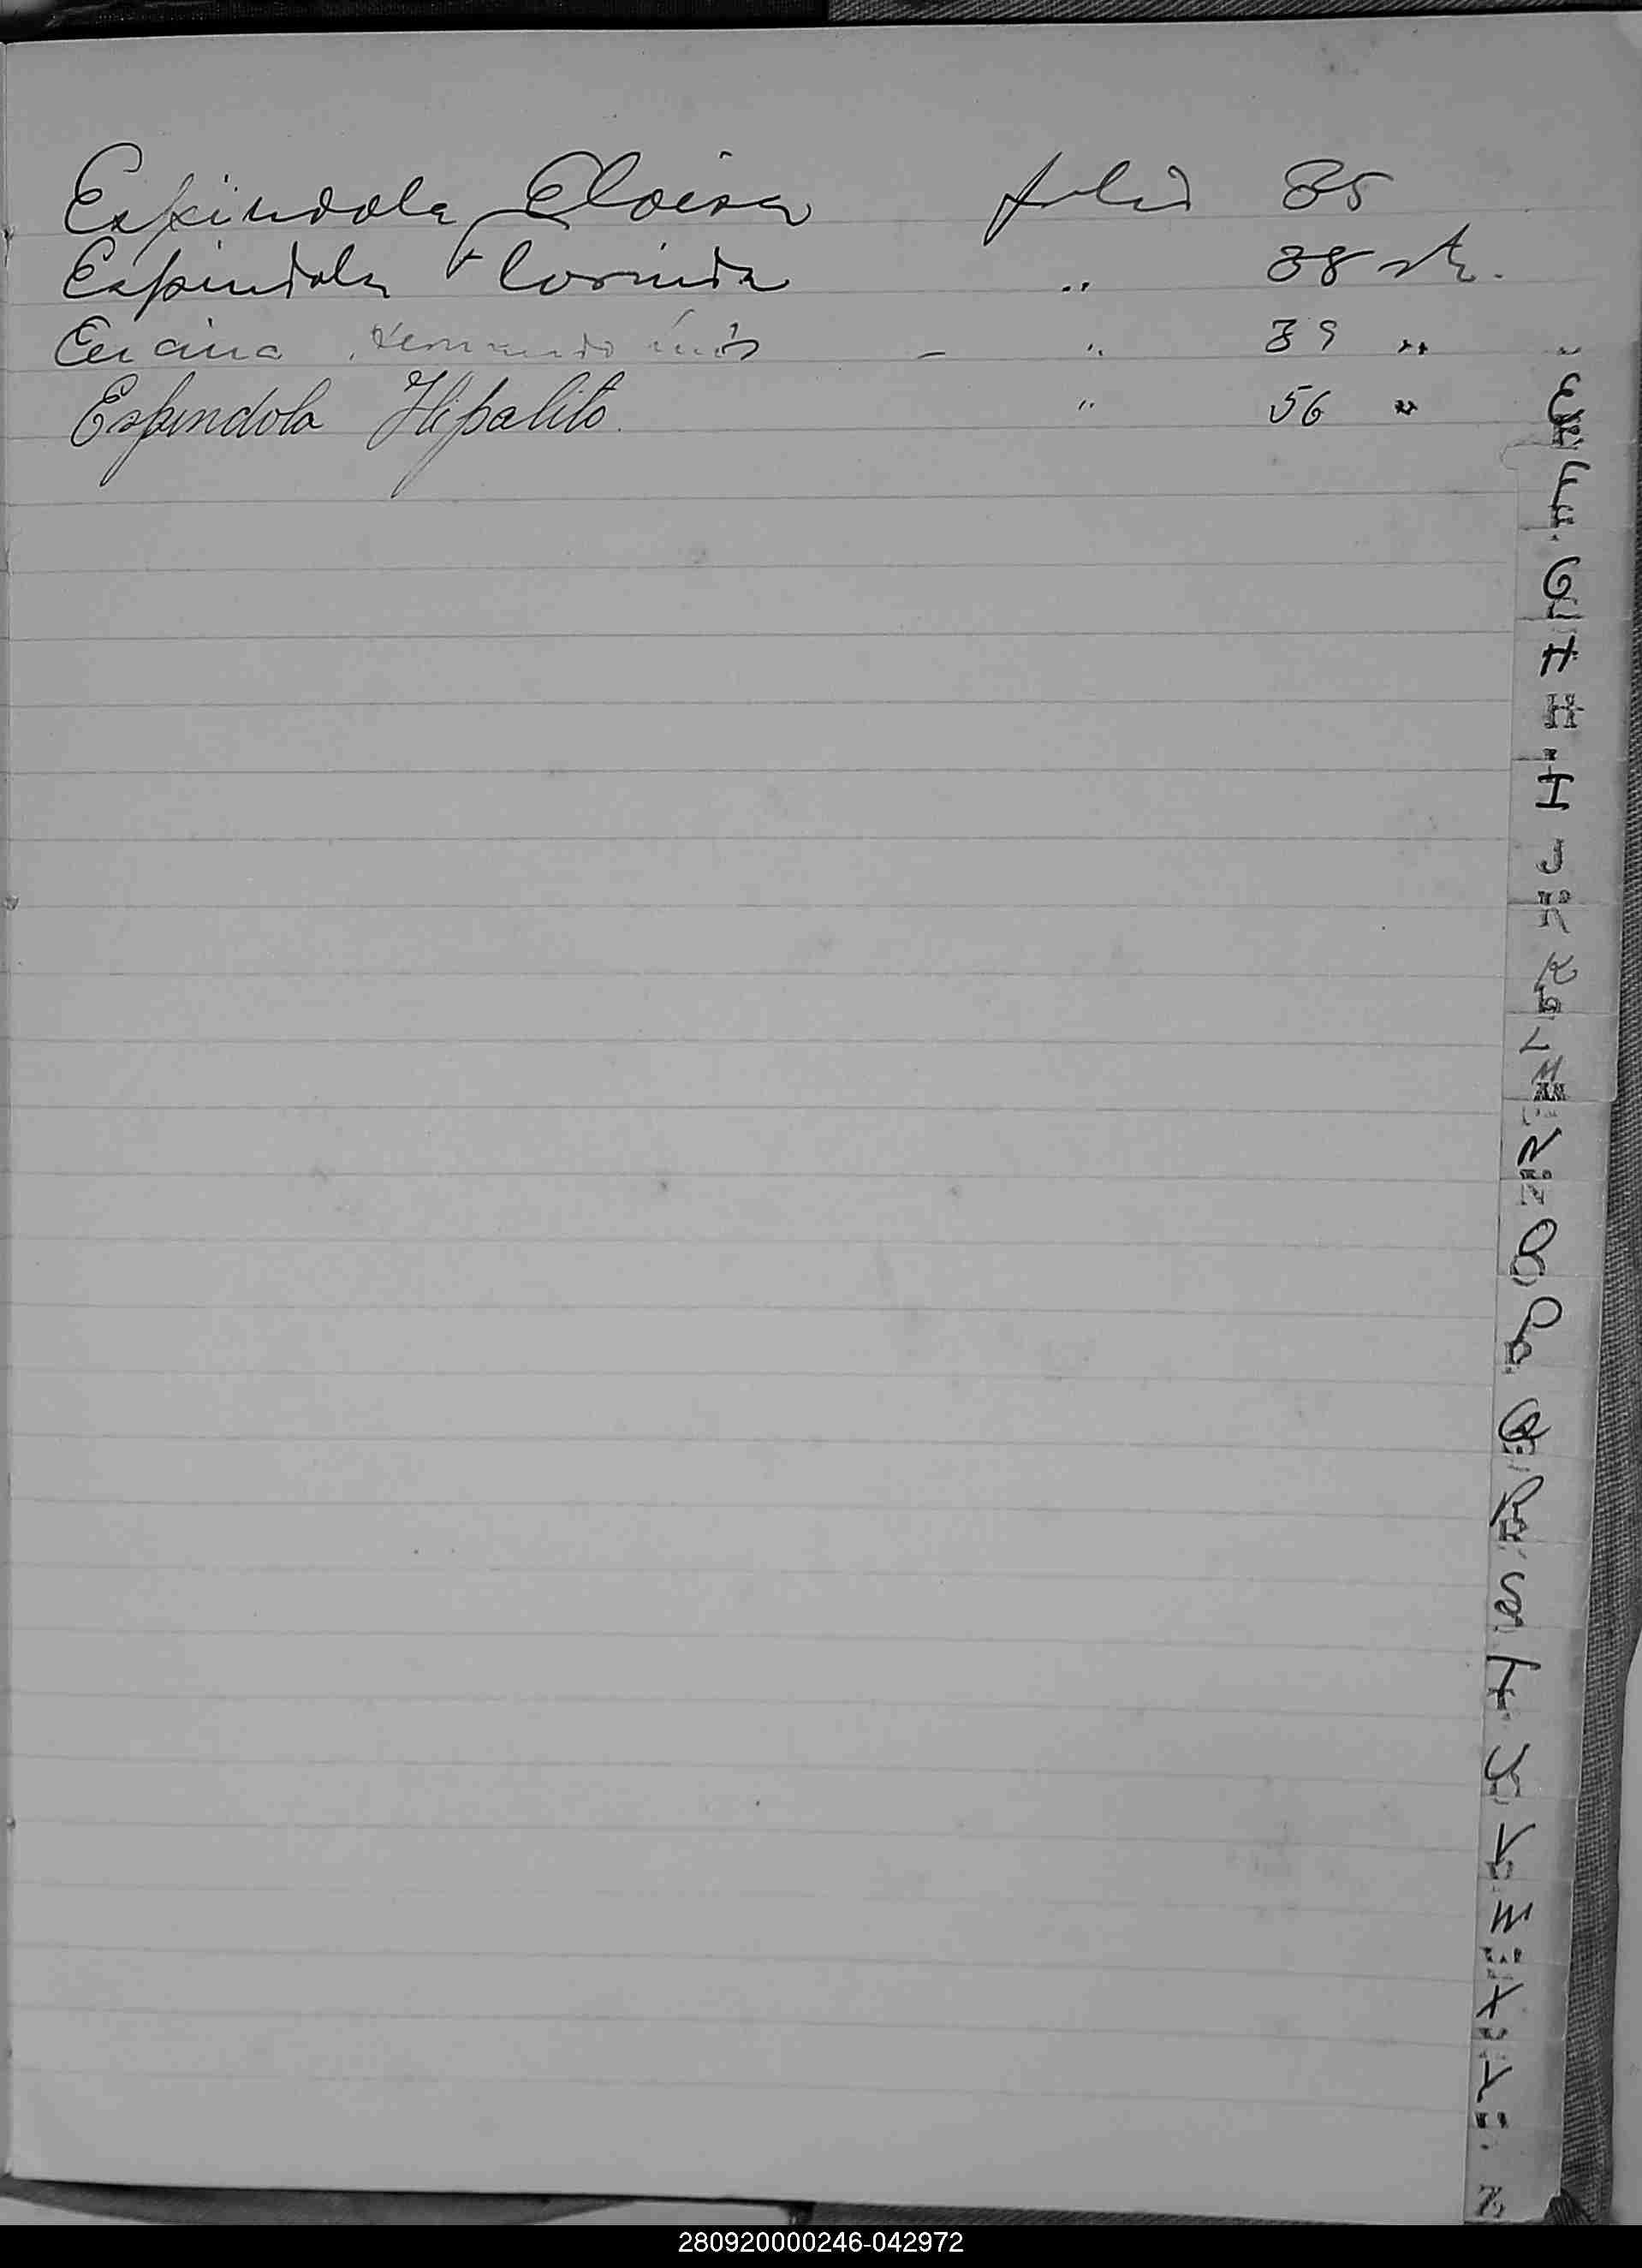 Espindola Eloisa folio 35
Espindola Florinda " 38 vta.
" 39 "
Espindola Hipolito. " 56 "
E
F
G
H
H
I
J
K
L
M
N
O
P
Q
R
S
T
U
V
W
X
Y
Z
280920000246-042972